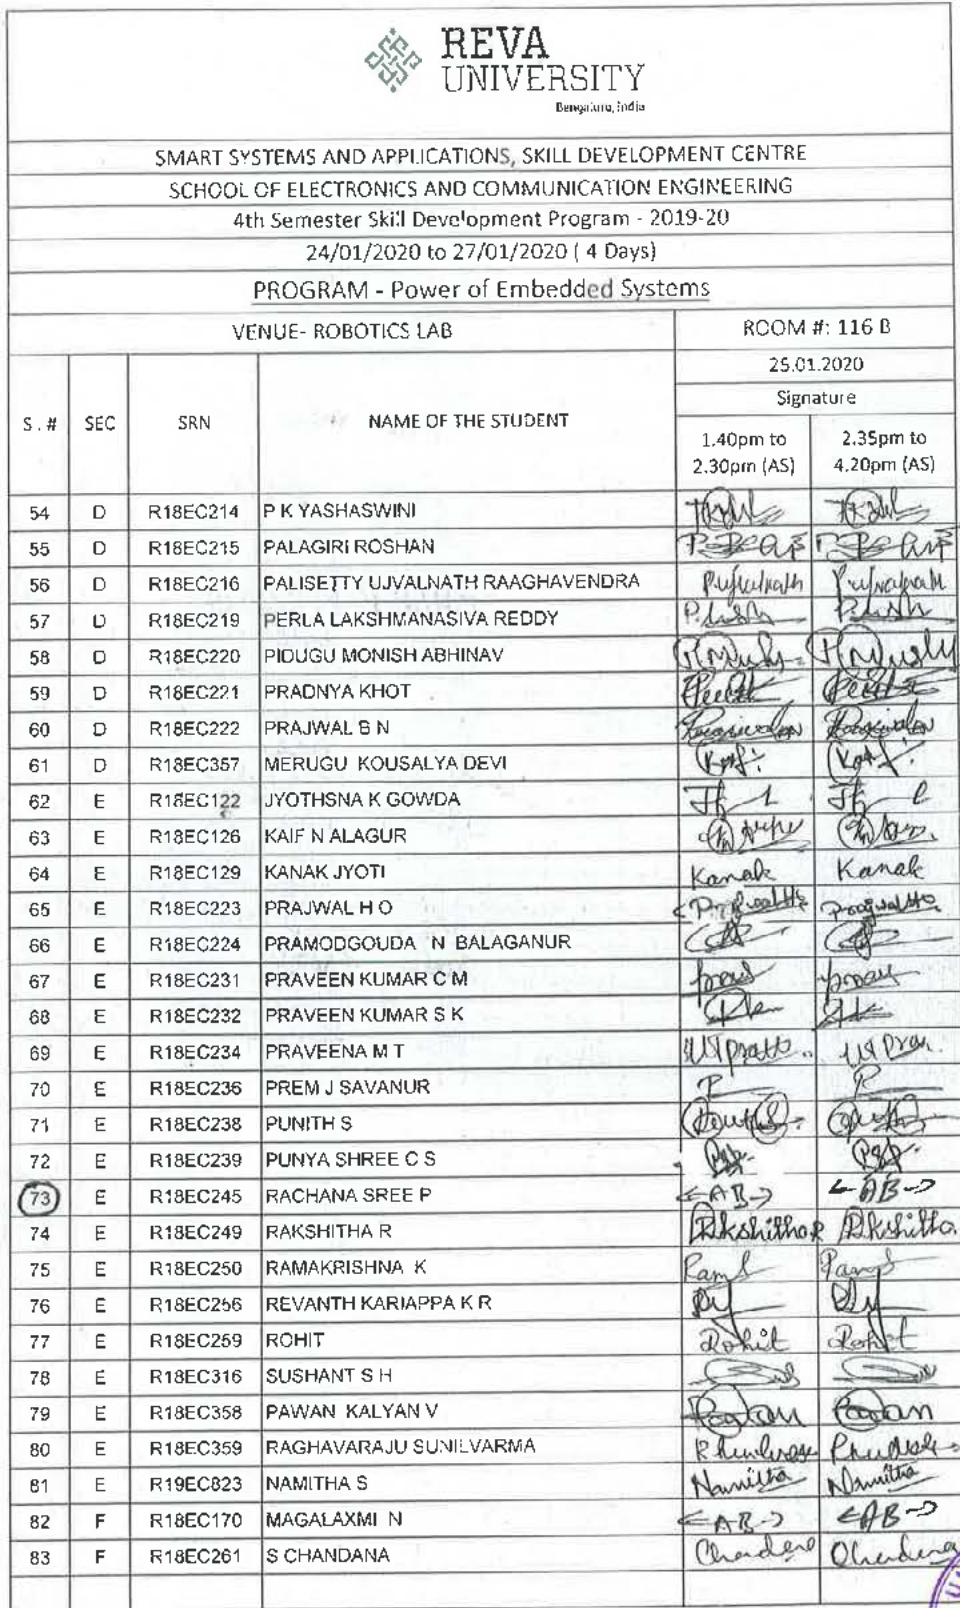 REVA
UNIVERSITY
Bengaluru, India
SMART SYSTEMS AND APPLICATIONS, SKILL DEVELOPMENT CENTRE
SCHOOL OF ELECTRONICS AND COMMUNICATION ENGINEERING
4th Semester Skill Development Program - 2019-20
24/01/2020 to 27/01/2020 ( 4 Days)
PROGRAM - Power of Embedded Systems
VENUE- ROBOTICS LAB ROOM #: 116 B
25.01.2020
Signature
S . # SEC SRN NAME OF THE STUDENT 1.40pm to 2.30pm (AS) 2.35pm to 4.20pm (AS)
54 D R18EC214 P K YASHASWINI
55 D R18EC215 PALAGIRI ROSHAN
56 D R18EC216 PALISETTY UJVALNATH RAAGHAVENDRA
57 D R18EC219 PERLA LAKSHMANASIVA REDDY
58 D R18EC220 PIDUGU MONISH ABHINAV
59 D R18EC221 PRADNYA KHOT
60 D R18EC222 PRAJWAL B N
61 D R18EC357 MERUGU KOUSALYA DEVI
62 E R18EC122 JYOTHSNA K GOWDA
63 E R18EC126 KAIF N ALAGUR
64 E R18EC129 KANAK JYOTI Kanak Kanak
65 E R18EC223 PRAJWAL H O
66 E R18EC224 PRAMODGOUDA N BALAGANUR
67 E R18EC231 PRAVEEN KUMAR C M
68 E R18EC232 PRAVEEN KUMAR S K
69 E R18EC234 PRAVEENA M T
70 E R18EC236 PREM J SAVANUR
71 E R18EC238 PUNITH S
72 E R18EC239 PUNYA SHREE C S
73 E R18EC245 RACHANA SREE P <-AB-> <-AB->
74 E R18EC249 RAKSHITHA R
75 E R18EC250 RAMAKRISHNA K
76 E R18EC256 REVANTH KARIAPPA K R
77 E R18EC259 ROHIT Rohit Rohit
78 E R18EC316 SUSHANT S H
79 E R18EC358 PAWAN KALYAN V
80 E R18EC359 RAGHAVARAJU SUNILVARMA
81 E R19EC823 NAMITHA S Namitha Namitha
82 F R18EC170 MAGALAXMI N <-AB-> <-AB->
83 F R18EC261 S CHANDANA